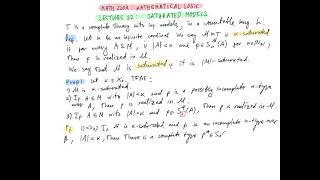 MATH 220A: MATHEMATICAL LOGIC
LECTURE 22: SATURATED MODELS
T is a complete theory with inf. models, in a countable lang. L.
Def. Let κ be an infinite cardinal. We say M ⊨ T is κ-saturated
if for every A ⊆ M, if |A| < κ and p ∈ S_n^M(A) for n<ω,
then p is realized in M.
We say that M is saturated if it is |M|-saturated.
Prop: Let κ ≥ ℵ₀, TFAE:
1) M is κ-saturated.
2) If A ⊆ M with |A|<κ and p is a possibly incomplete n-type
over A, then p is realized in M.
3) If A ⊆ M with |A|<κ and p ∈ S₁^M(A), then p is realized in M.
Pf. 1)⇒2) If M is κ-saturated and p is an incomplete n-type over
A, |A|<κ, then there is a complete type p* ∈ S_n